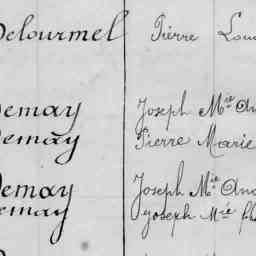 Delourmel Pierre Lou
Demay Joseph Mie An
Demay Pierre Marie
Demay Joseph Mie And
Demay Joseph Mie fil